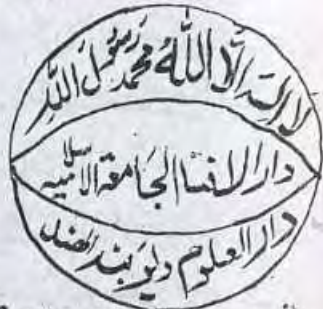 لا الہ الا اللہ محمد رسول اللہ
دار الافتاء الجامعۃ الاسلامیہ
دار العلوم دیوبند الھند